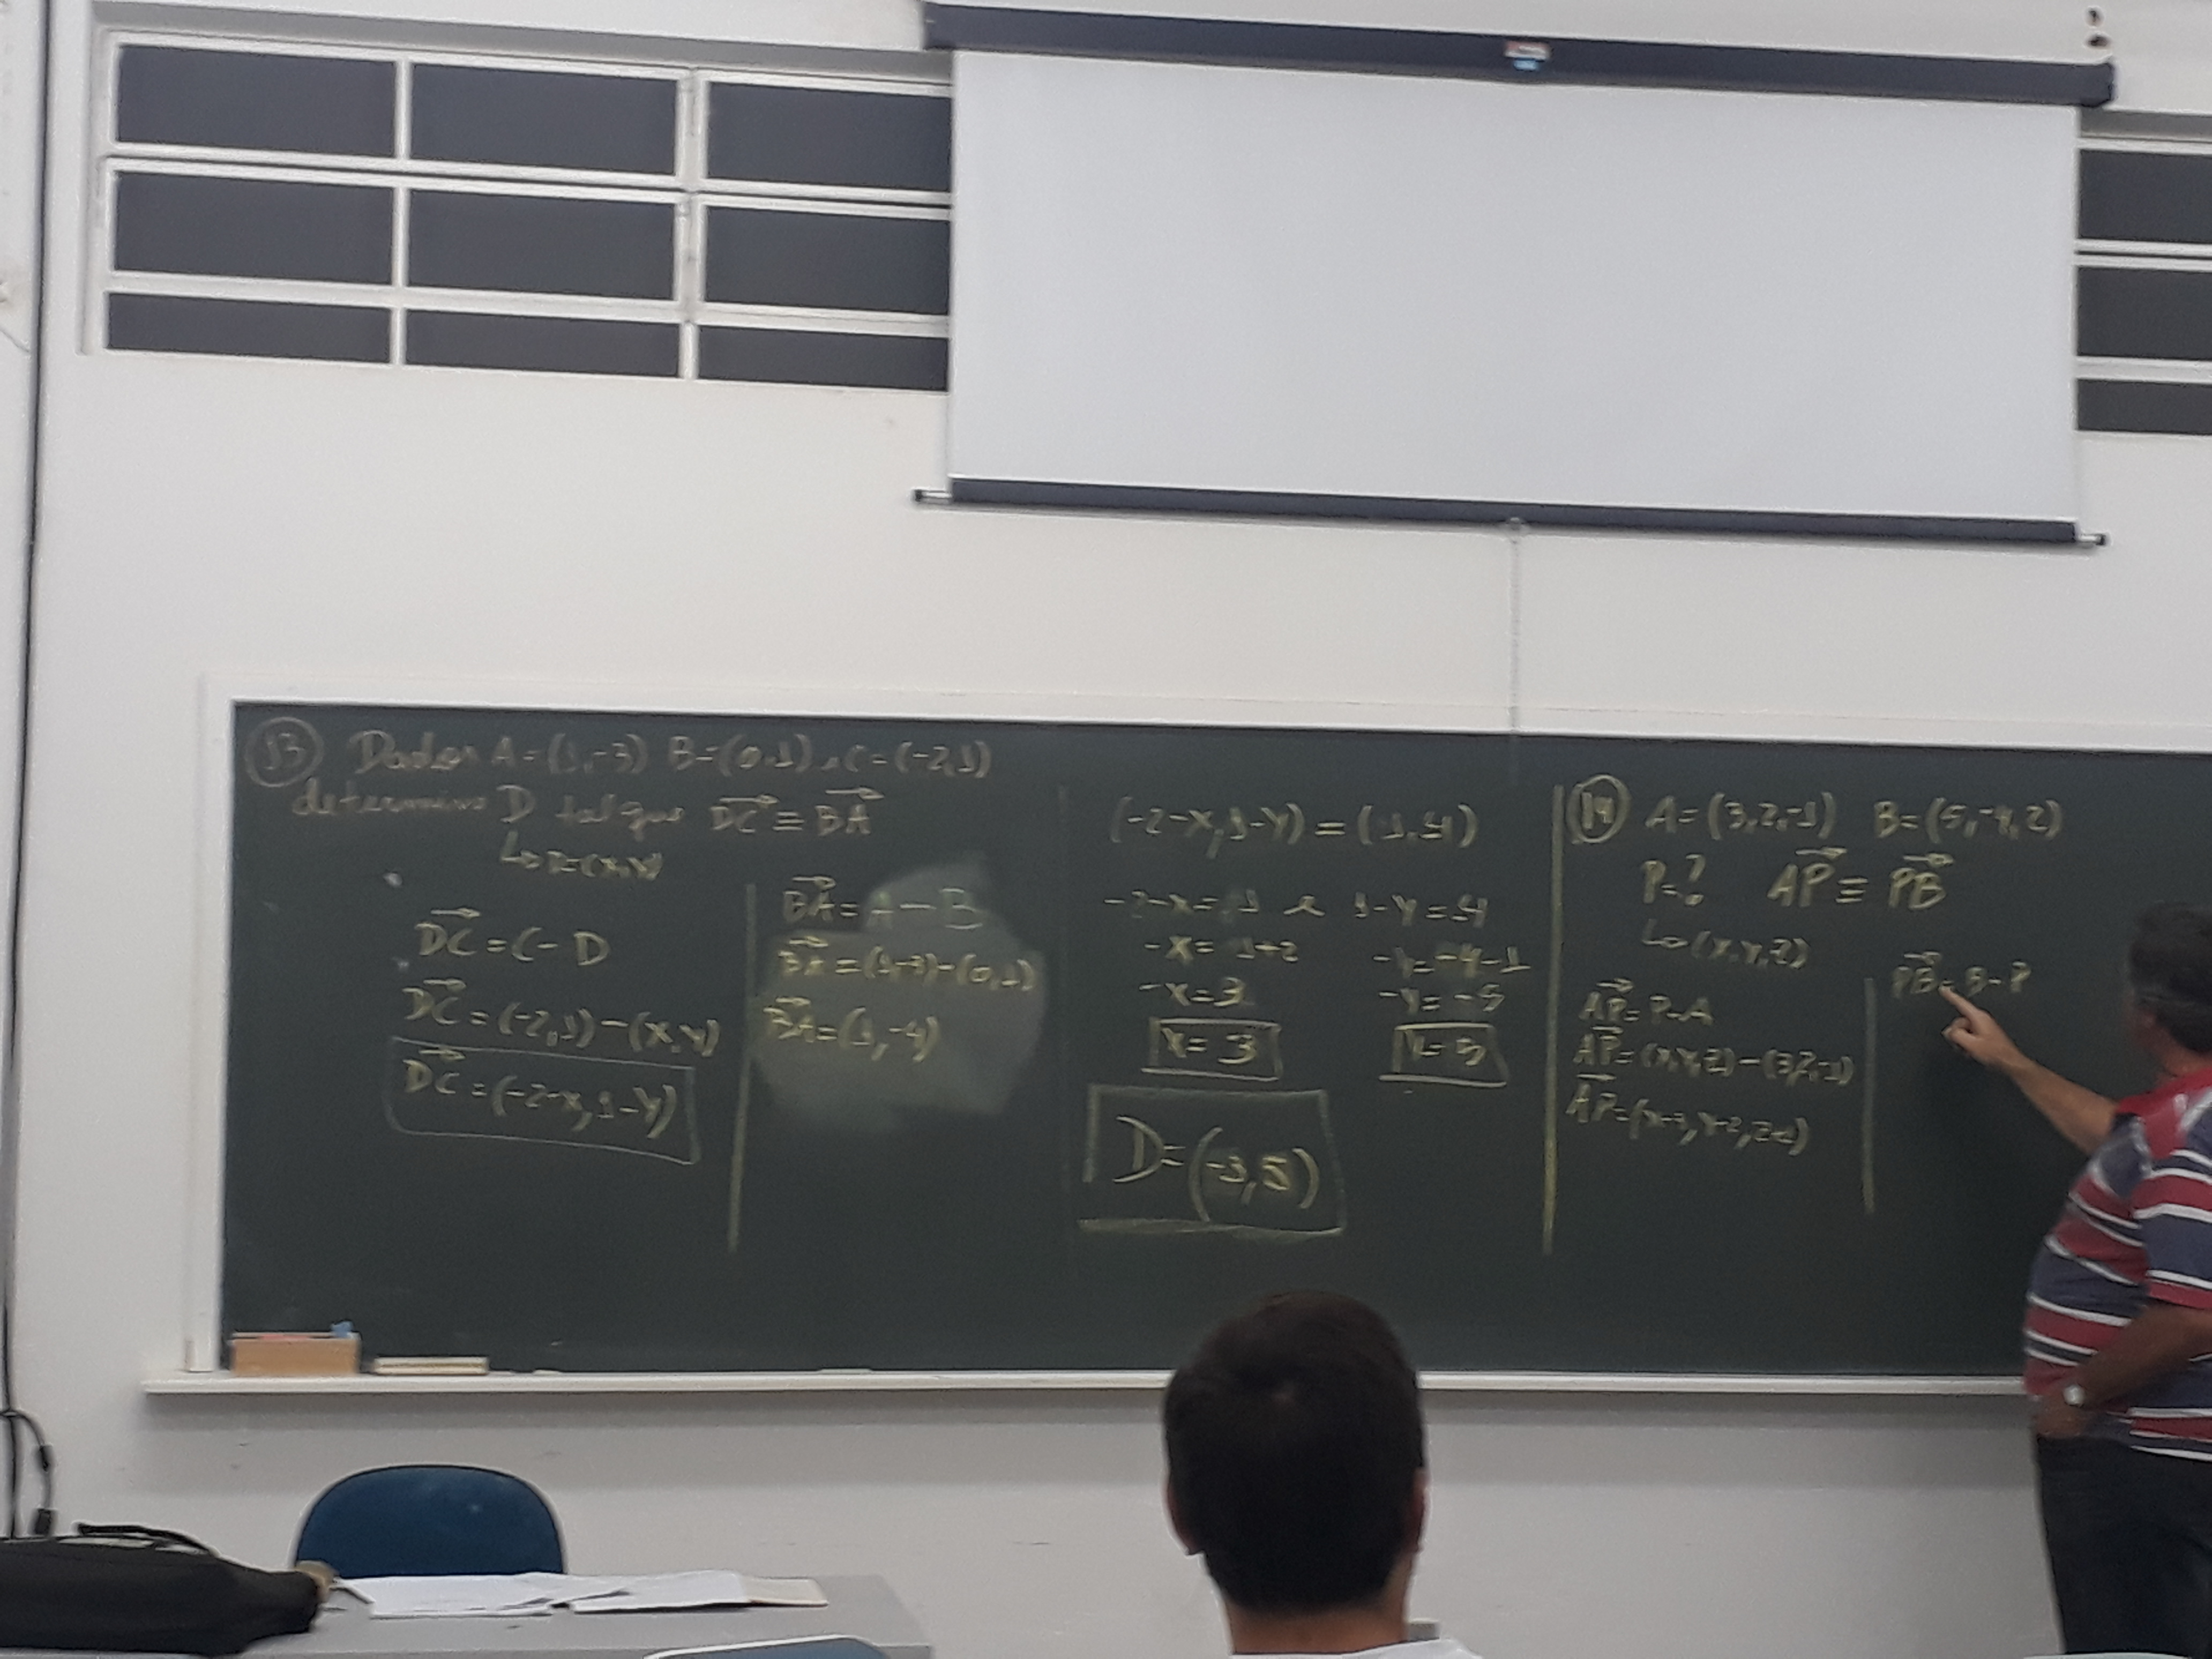 13 Dados A=(1,-3) B=(0,1) e C=(-2,1)
determine D tal que DC ≡ BA
↳ D=(x,y)
DC = C - D
DC = (-2,1)-(x,y)
DC = (-2-x,1-y)
BA = A - B
BA = (1,-3)-(0,1)
BA = (1,-4)
(-2-x,1-y) = (1,-4)
-2-x=1 e 1-y=-4
-x= 1+2
-x=3
x= 3
-y=-4-1
-y= -5
y=5
D=(-3,5)
14 A=(3,2,-1) B=(5,-4,2)
P=? AP ≡ PB
↳ (x,y,z)
AP = P-A
AP = (x,y,z)-(3,2,-1)
AP =
PB = B-P